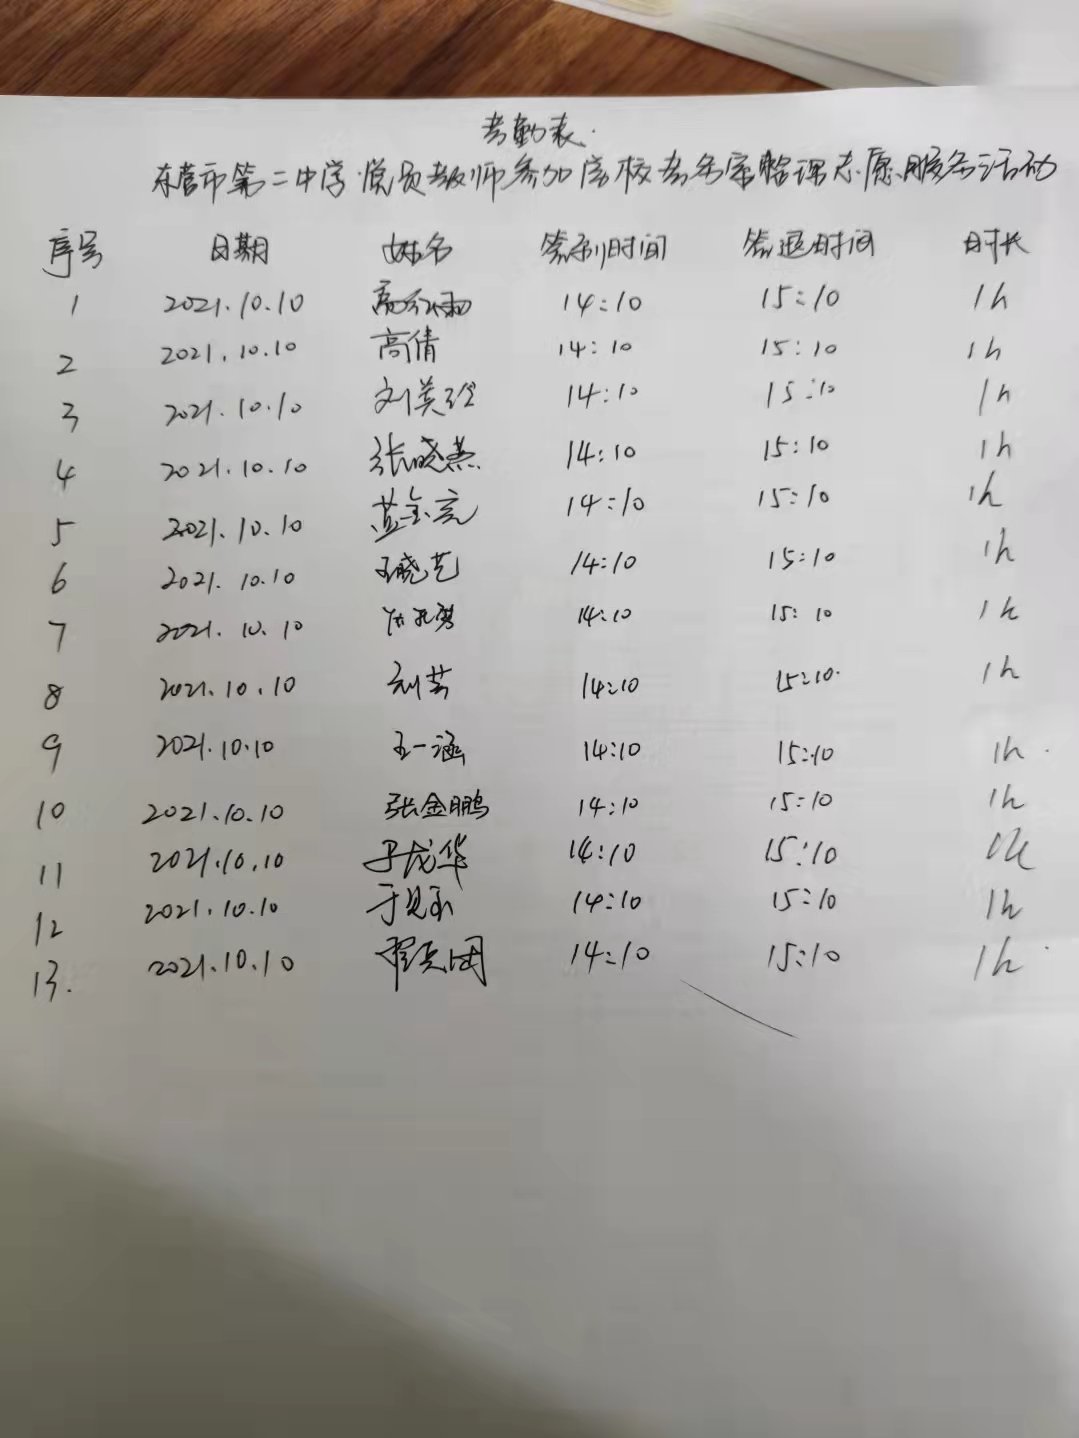 考勤表.
东营市第二中学党员教师参加学校考务室整理志愿服务活动
序号 日期 姓名 签到时间 签退时间 时长
1 2021.10.10 14:10 15:10 1h
2 2021.10.10 高倩 14:10 15:10 1h
3 2021.10.10 刘美玲 14:10 15:10 1h
4 2021.10.10 张晓燕 14:10 15:10 1h
5 2021.10.10 蓝金亮 14:10 15:10 1h
6 2021.10.10 王晓艺 14:10 15:10 1h
7 2021.10.10 14:10 15:10 1h
8 2021.10.10 刘芸 14:10 15:10 1h
9 2021.10.10 王一涵 14:10 15:10 1h
10 2021.10.10 张金鹏 14:10 15:10 1h
11 2021.10.10 14:10 15:10 1h
12 2021.10.10 14:10 15:10 1h
13. 2021.10.10 14:10 15:10 1h